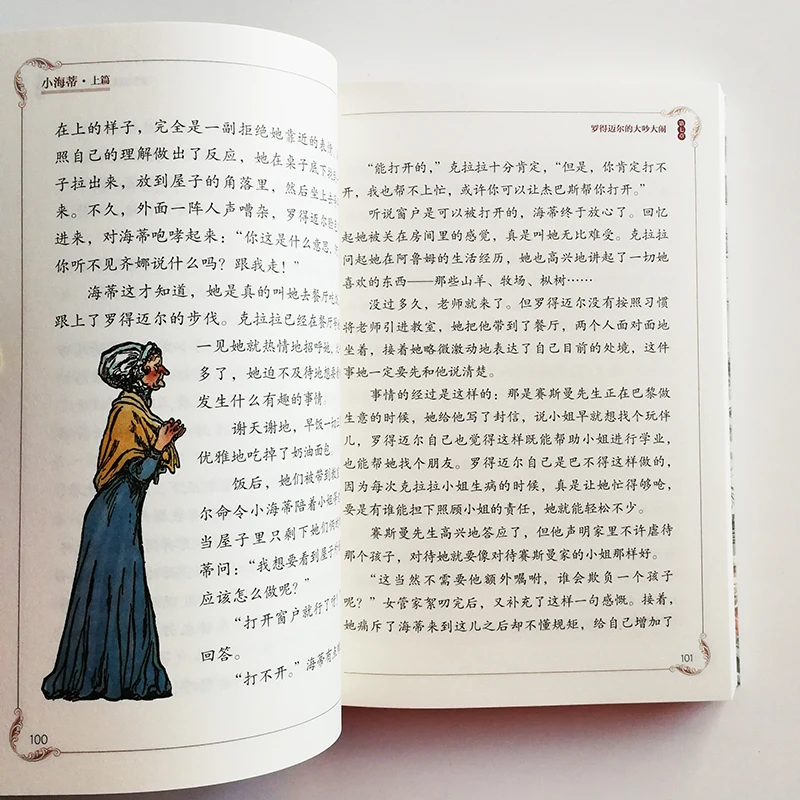 小海蒂·上篇
在上的样子，完全是一副拒绝她靠近的表情
照自己的理解做出了反应，她在桌子底下
子拉出来，放到屋子的角落里，然后坐上去
来。不久，外面一阵人声嘈杂，罗得迈尔
进来，对海蒂咆哮起来：“你这是什么意思，
你听不见齐娜说什么吗？跟我走！”
海蒂这才知道，她是真的叫她去餐厅吃
跟上了罗得迈尔的步伐。克拉拉已经在餐厅
一见她就热情地招呼她，
多了，她迫不及待地想要
发生什么有趣的事情。
谢天谢地，早饭一切
优雅地吃掉了奶油面包
饭后，她们被带到
尔命令小海蒂陪着小姐
当屋子里只剩下她们俩
蒂问：“我想要看到屋子
应该怎么做呢？”
“打开窗户就行了
回答。
“打不开。”海蒂有
100
罗得迈尔的大吵大闹
第七章
“能打开的，”克拉拉十分肯定，“但是，你肯定打不
开，我也帮不上忙，或许你可以让杰巴斯帮你打开。”
听说窗户是可以被打开的，海蒂终于放心了。回忆
起她被关在房间里的感觉，真是叫她无比难受。克拉拉
问起她在阿鲁姆的生活经历，她也高兴地讲起了一切她
喜欢的东西——那些山羊、牧场、枞树……
没过多久，老师就来了。但罗得迈尔没有按照习惯
将老师引进教室，她把他带到了餐厅，两个人面对面地
坐着，接着她略微激动地表达了自己目前的处境，这件
事她一定要先和他说清楚。
事情的经过是这样的：那是赛斯曼先生正在巴黎做
生意的时候，她给他写了封信，说小姐早就想找个玩伴
儿，罗得迈尔自己也觉得这样既能帮助小姐进行学业，
也能帮她找个朋友。罗得迈尔自己是巴不得这样做的，
因为每次克拉拉小姐生病的时候，真是让她忙得够呛，
要是有谁能担下照顾小姐的责任，她就能轻松不少。
赛斯曼先生高兴地答应了，但他声明家里不许虐待
那个孩子，对待她就要像对待赛斯曼家的小姐那样好。
“这当然不需要他额外嘱咐，谁会欺负一个孩子
呢？”女管家絮叨完后，又补充了这样一句感慨。接着，
她痛斥了海蒂来到这儿之后却不懂规矩，给自己增加了
101